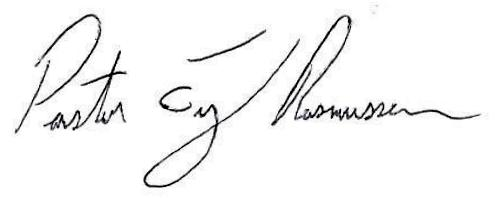 Pastor Ty Rasmussen